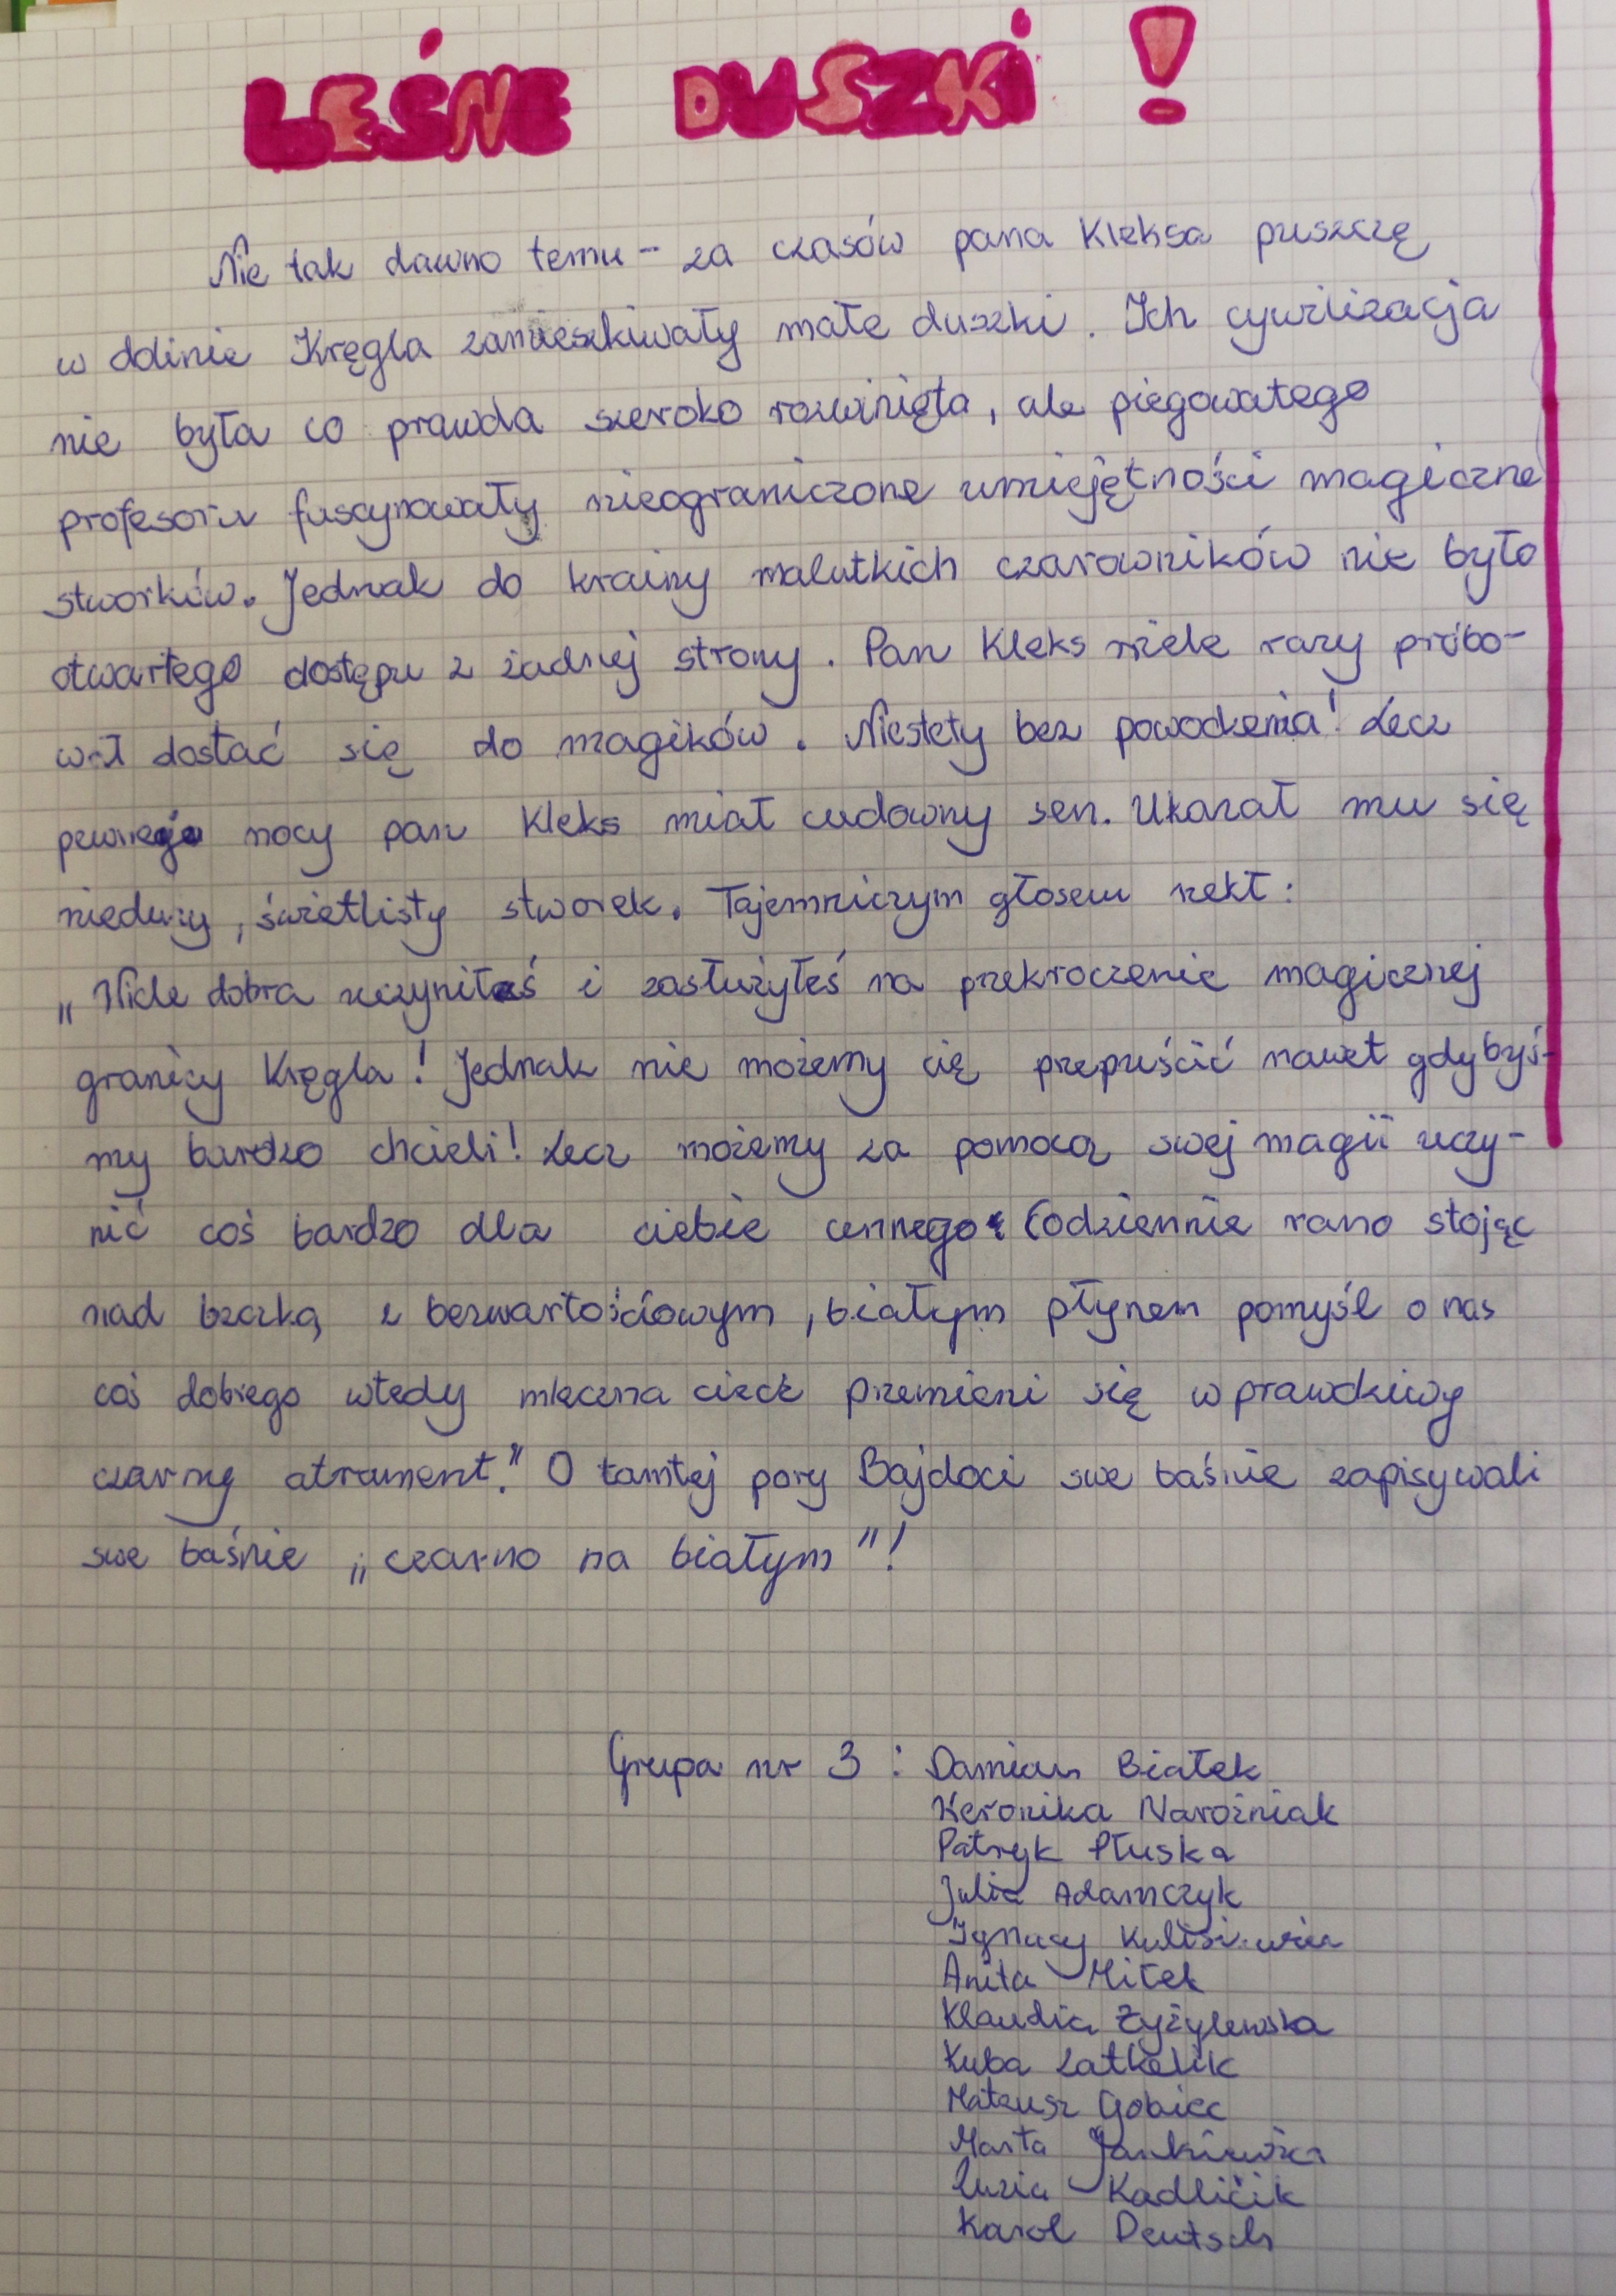 LEŚNE DUSZKI!
Nie tak dawno temu - za czasów pana Kleksa puszczę
w dolinie Kręgla zamieszkiwały małe duszki. Ich cywilizacja
nie była co prawda szeroko rozwinięta, ale piegowatego
profesora fascynowały nieograniczone umiejętności magiczne
stworków. Jednak do krainy malutkich czarowników nie było
otwartego dostępu z żadnej strony. Pan Kleks wiele razy próbo-
wał dostać się do magików. Niestety bez powodzenia! Lecz
pewnej nocy pan Kleks miał cudowny sen. Ukazał mu się
nieduży, świetlisty stworek. Tajemniczym głosem rzekł:
„Wiele dobra uczyniłeś i zasłużyłeś na przekroczenie magicznej
granicy Kręgla! Jednak nie możemy cię przepuścić nawet gdybyś-
my bardzo chcieli! Lecz możemy za pomocą swej magii uczy-
nić coś bardzo dla ciebie cennego. Codziennie rano stojąc
nad beczką z bezwartościowym, białym płynem pomyśl o nas
coś dobrego wtedy mleczna ciecz przemieni się w prawdziwy
czarny atrament." O tamtej pory Bajdoci swe baśnie zapisywali
swe baśnie „czarno na białym"!
Grupa nr 3: Damian Białek
Weronika Narożniak
Patryk Płuska
Julia Adamczyk
Ignacy
Anita Miłek
Klaudia Żyżylewska
Kuba
Mateusz Gobiec
Marta Jankiewicz
Zuzia Kadličik
Karol Deutsch